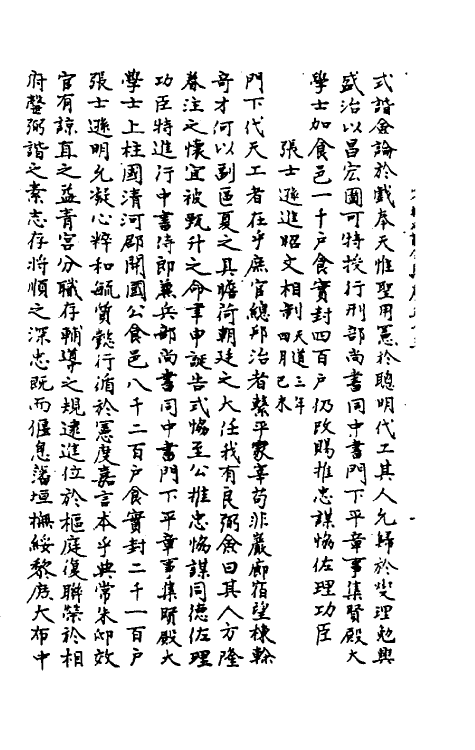 式諧僉論於戲奉天惟聖用憲於聰明代工其人允歸於燮理勉興
盛治以昌宏圖可特授行刑部尚書同中書門下平章事集賢殿大
學士加食邑一千戶食實封四百戶仍改賜推忠謀協佐理功臣
張士遜進昭文相制天道三年四月己未
門下代天工者在乎庶官總邦治者繫乎冢宰苟非巖廊宿望棟幹
奇才何以到區夏之具瞻荷朝廷之大任我有良弼僉曰其人方隆
眷注之懷宜被甄升之命聿申誕告式協至公推忠協謀同德佐理
功臣特進行中書侍郎兼兵部尚書同中書門下平章事集賢殿大
學士上柱國清河郡開國公食邑八千二百戶食實封二千一百戶
張士遜明允凝心粹和毓質懿行循於憲度嘉言本乎典常朱邸效
官有諒直之益青宮分職存輔導之規逮進位於樞庭復聯榮於相
府罄弼諧之素志存將順之深忠既而偃息藩垣撫綏黎庶大布中